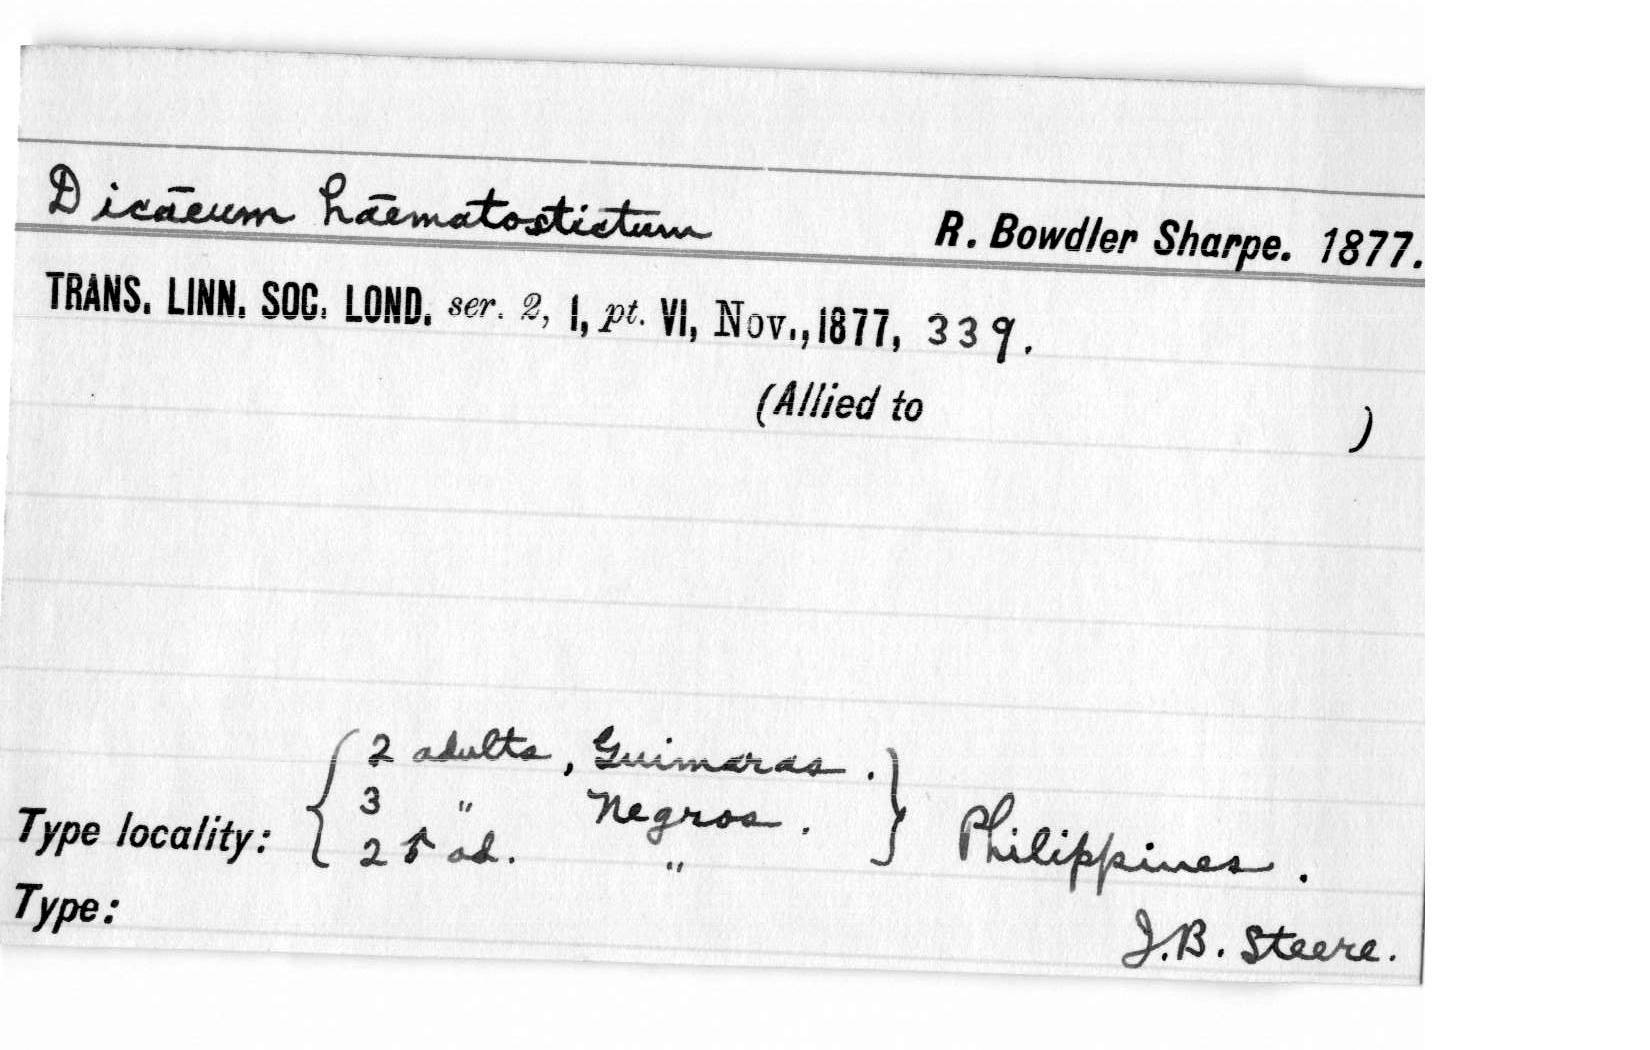 Dicāeum hāematostictum R. Bowdler Sharpe. 1877.
TRANS. LINN. SOC. LOND. ser. 2, I, pt. VI, Nov., 1877, 339.
(Allied to )
2 adults, Guimaras.
3 " Negros.
Type locality: 2 ad. " Philippines.
Type:
J.B. Steere.